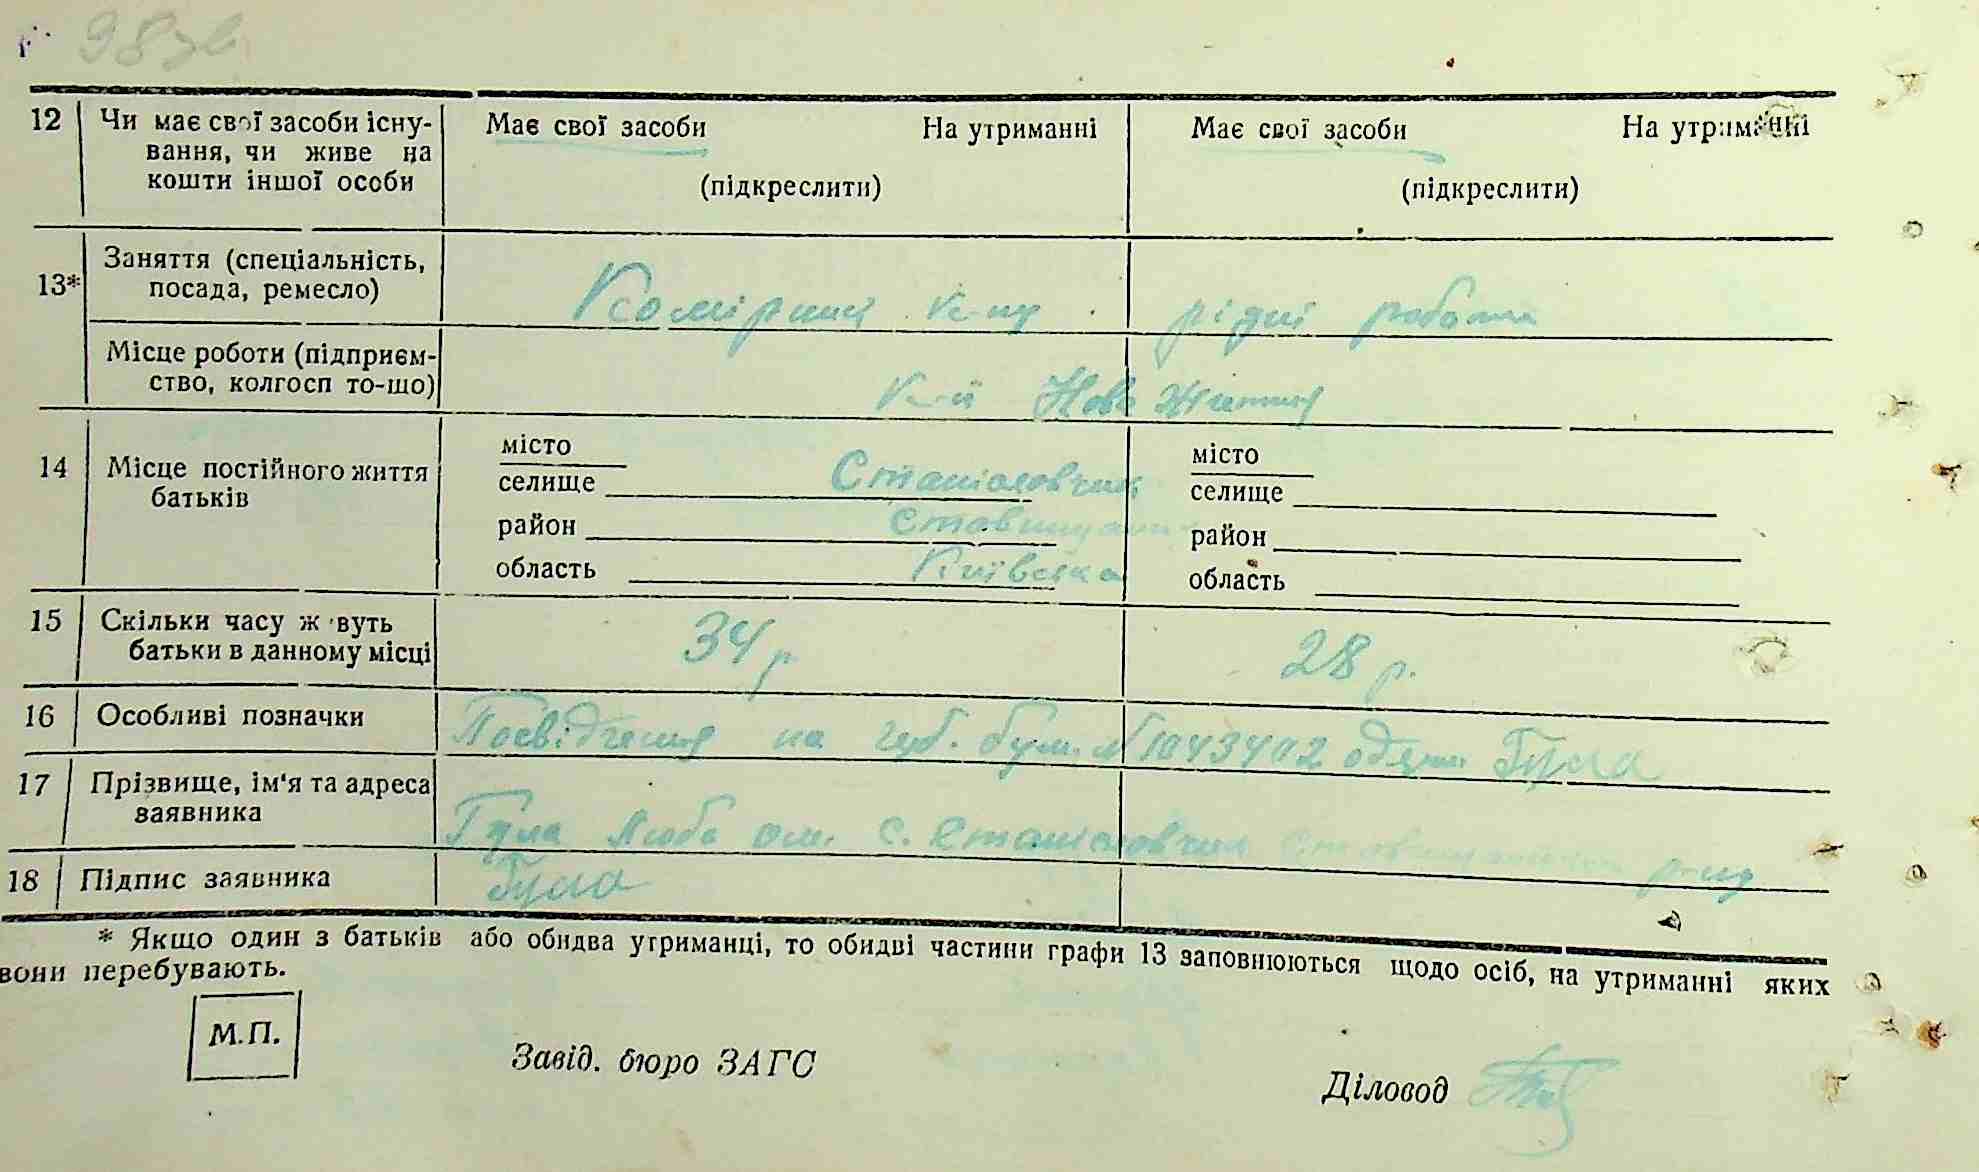 98зв
12 Чи має свої засоби існу-
вання, чи живе на
кошти іншої особи
Має свої засоби На утриманні
(підкреслити)
Має свої засоби На утриманні
(підкреслити)
13* Заняття (спеціальність,
посада, ремесло)
Комірник к-пу рідні робота
Місце роботи (підприєм-
ство, колгосп то-що)
К-п Нове Життя
14 Місце постійного життя
батьків
місто
селище Станіславчик
район Ставищанск
область Київська
місто
селище
район
область
15 Скільки часу ж вуть
батьки в данному місці
34 р 28 р.
16 Особливі позначки
Посвідчення на губ. бум. № 1043402 одерж. Гула
17 Прізвище, ім'я та адреса
заявника
Гула Люба с. Станіславчик р-ну
18 Підпис заявника
Гула
* Якщо один з батьків або обидва утриманці, то обидві частини графи 13 заповнюються щодо осіб, на утриманні яких
вони перебувають.
М.П.
Завід. бюро ЗАГС
Діловод